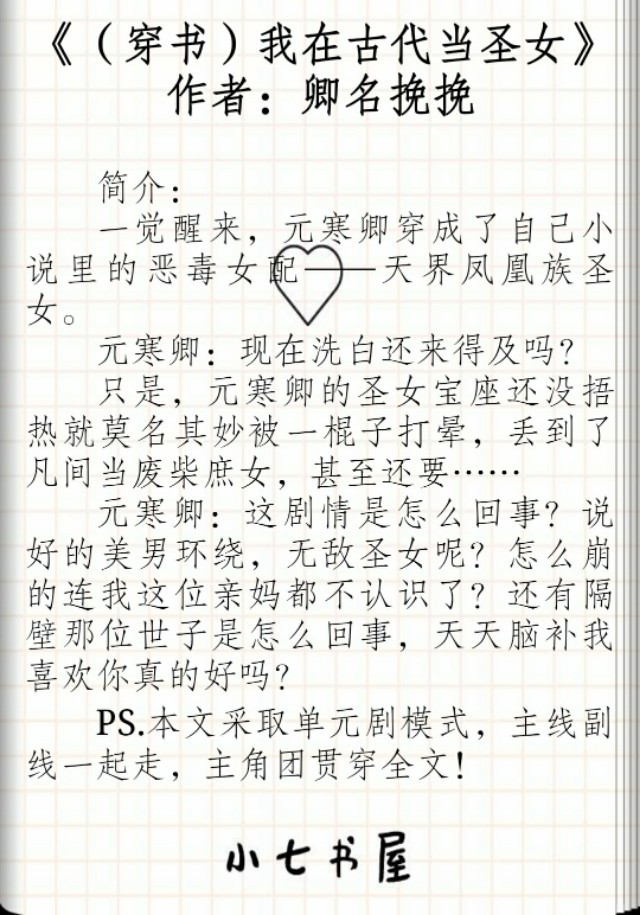 《（穿书）我在古代当圣女》
作者：卿名挽挽
简介：
一觉醒来，元寒卿穿成了自己小
说里的恶毒女配——天界凤凰族圣
女。
元寒卿：现在洗白还来得及吗？
只是，元寒卿的圣女宝座还没捂
热就莫名其妙被一棍子打晕，丢到了
凡间当废柴庶女，甚至还要……
元寒卿：这剧情是怎么回事？说
好的美男环绕，无敌圣女呢？怎么崩
的连我这位亲妈都不认识了？还有隔
壁那位世子是怎么回事，天天脑补我
喜欢你真的好吗？
PS.本文采取单元剧模式，主线副
线一起走，主角团贯穿全文！
小七书屋